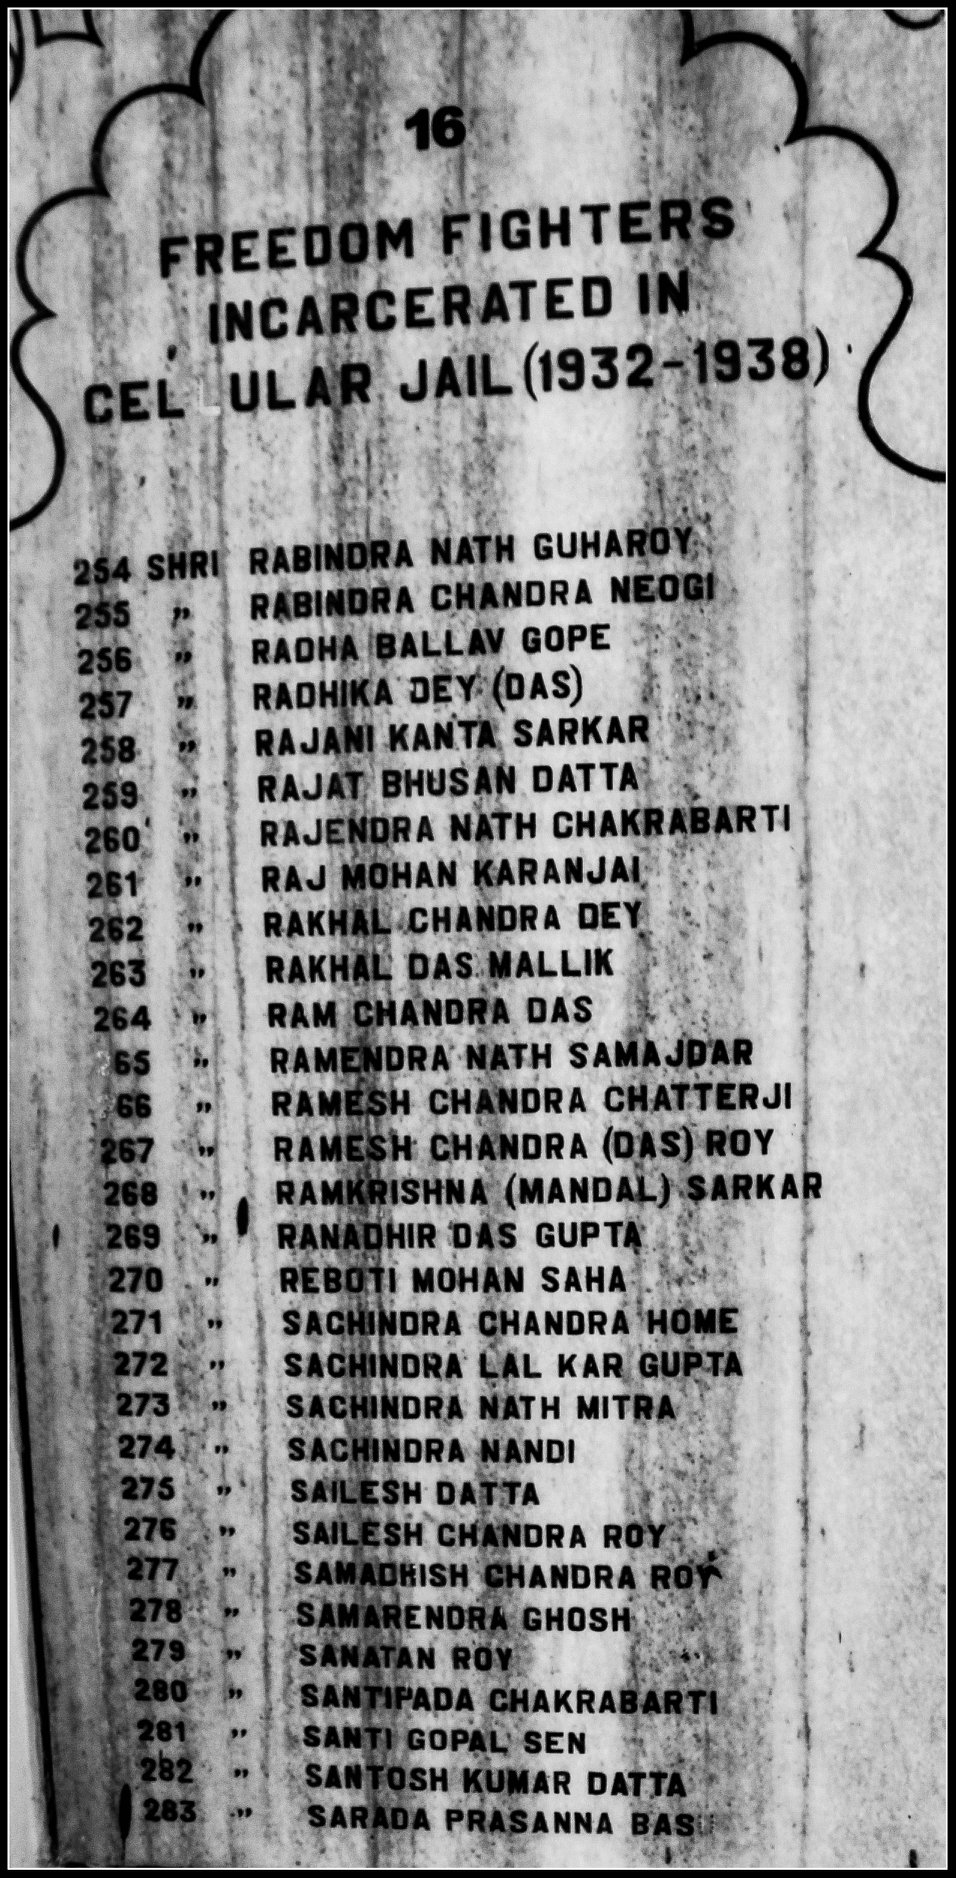 16
FREEDOM FIGHTERS
INCARCERATED IN
CELLULAR JAIL (1932-1938)
254 SHRI RABINDRA NATH GUHAROY
255 " RABINDRA CHANDRA NEOGI
256 " RADHA BALLAV GOPE
257 " RADHIKA DEY (DAS)
258 " RAJANI KANTA SARKAR
259 " RAJAT BHUSAN DATTA
260 " RAJENDRA NATH CHAKRABARTI
261 " RAJ MOHAN KARANJAI
262 " RAKHAL CHANDRA DEY
263 " RAKHAL DAS MALLIK
264 " RAM CHANDRA DAS
65 " RAMENDRA NATH SAMAJDAR
66 " RAMESH CHANDRA CHATTERJI
267 " RAMESH CHANDRA (DAS) ROY
268 " RAMKRISHNA (MANDAL) SARKAR
269 " RANADHIR DAS GUPTA
270 " REBOTI MOHAN SAHA
271 " SACHINDRA CHANDRA HOME
272 " SACHINDRA LAL KAR GUPTA
273 " SACHINDRA NATH MITRA
274 " SACHINDRA NANDI
275 " SAILESH DATTA
276 " SAILESH CHANDRA ROY
277 " SAMADHISH CHANDRA ROY
278 " SAMARENDRA GHOSH
279 " SANATAN ROY
280 " SANTIPADA CHAKRABARTI
281 " SANTI GOPAL SEN
282 " SANTOSH KUMAR DATTA
283 " SARADA PRASANNA BASU